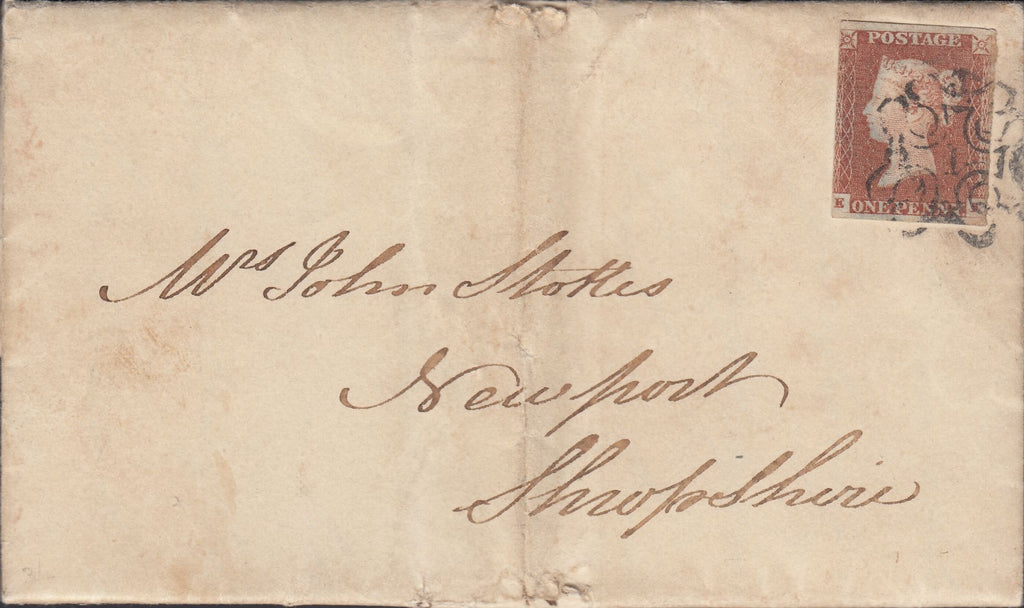 POSTAGE
1
K ONE PENNY
Mrs John Stokes
Newport
Shropshire